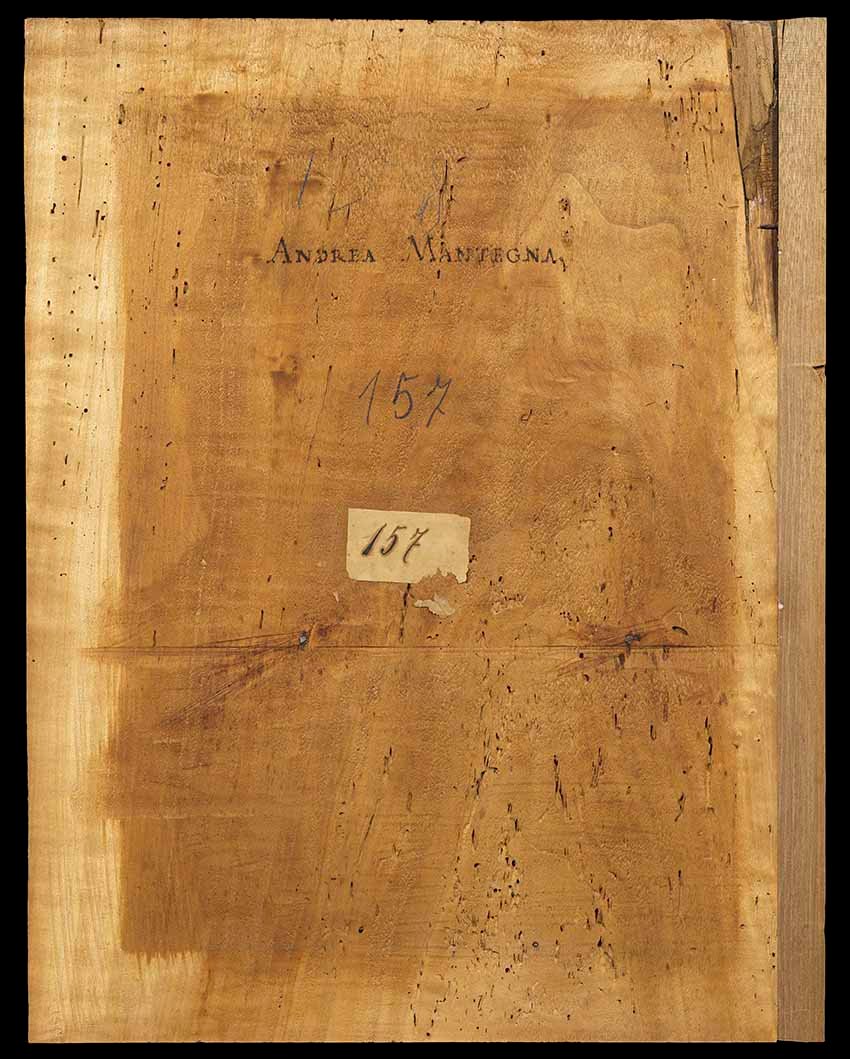 ANDREA MANTEGNA
157
157